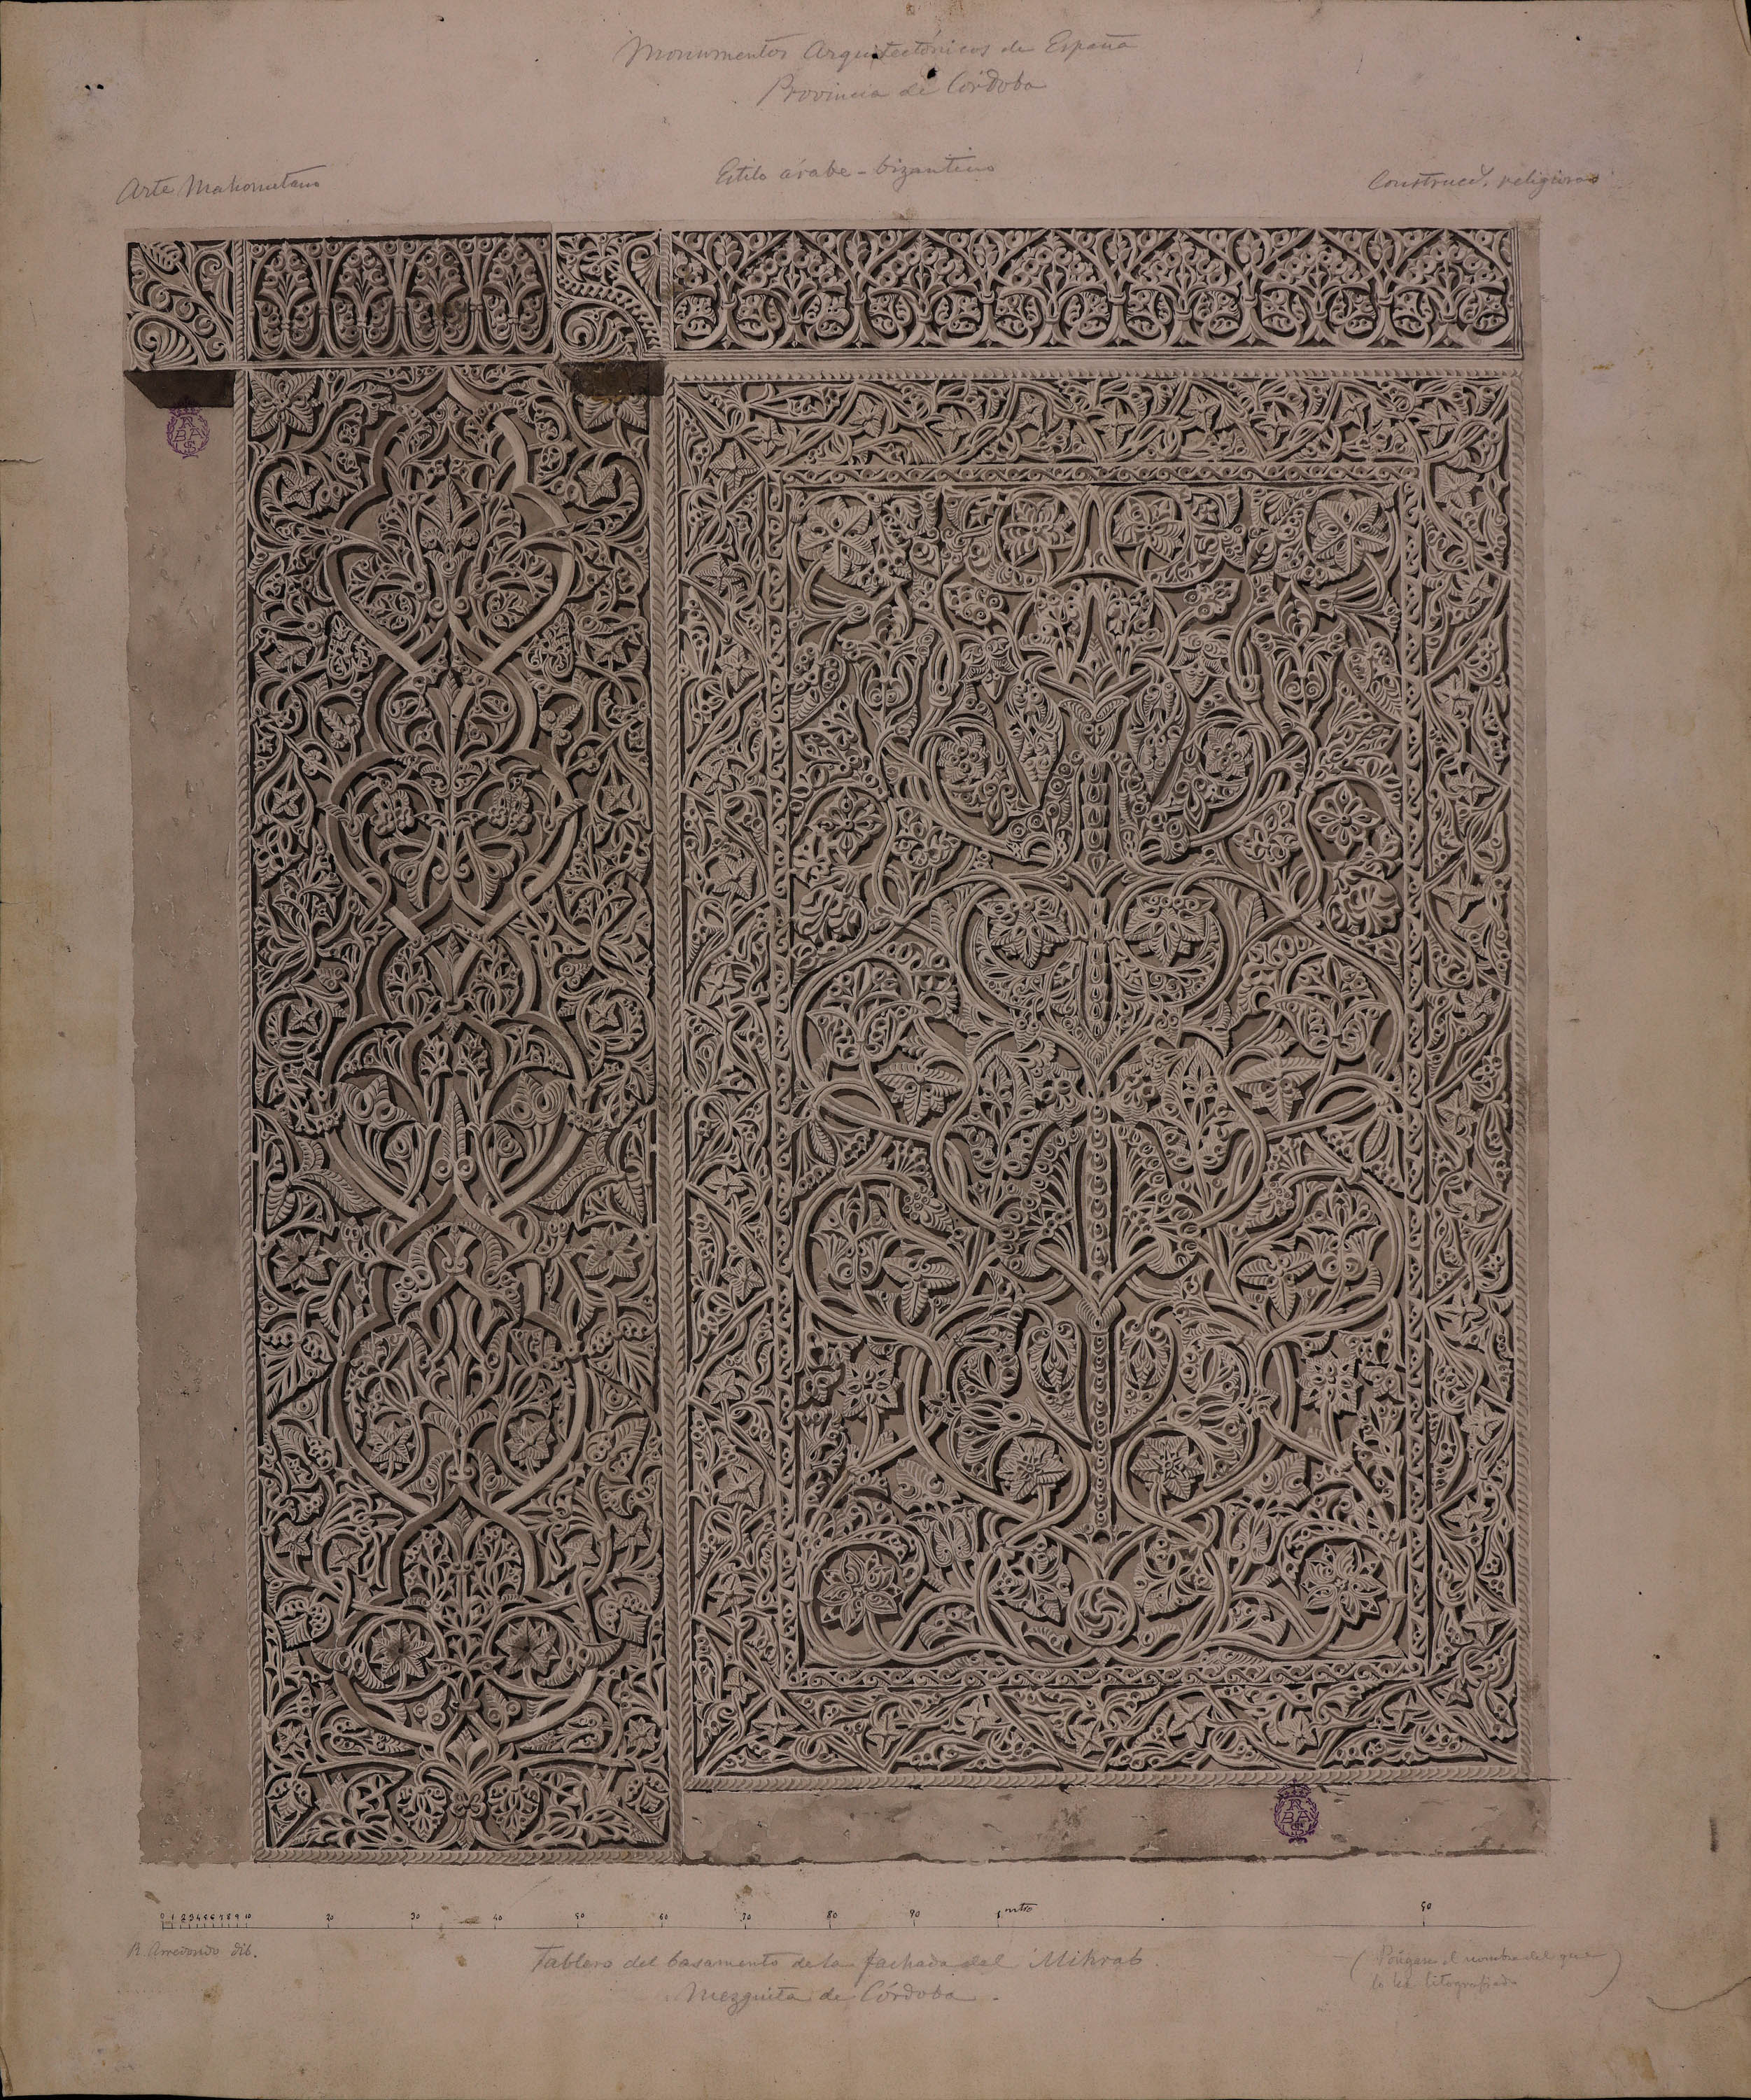 Monumentos Arquitectónicos de España
Provincia de Córdoba
Arte Mahometano
Estilo árabe-bizantino
Construcc.s religiosas
R
B A
S
R
B A
S
0 1 2 3 4 5 6 7 8 9 10 20 30 40 50 60 70 80 90 1 mtro 50
R. Arredondo dib.
Tablero del basamento de la fachada del Mihrab.
Mezquita de Córdoba.
(Póngase el nombre del que
lo ha litografiado)